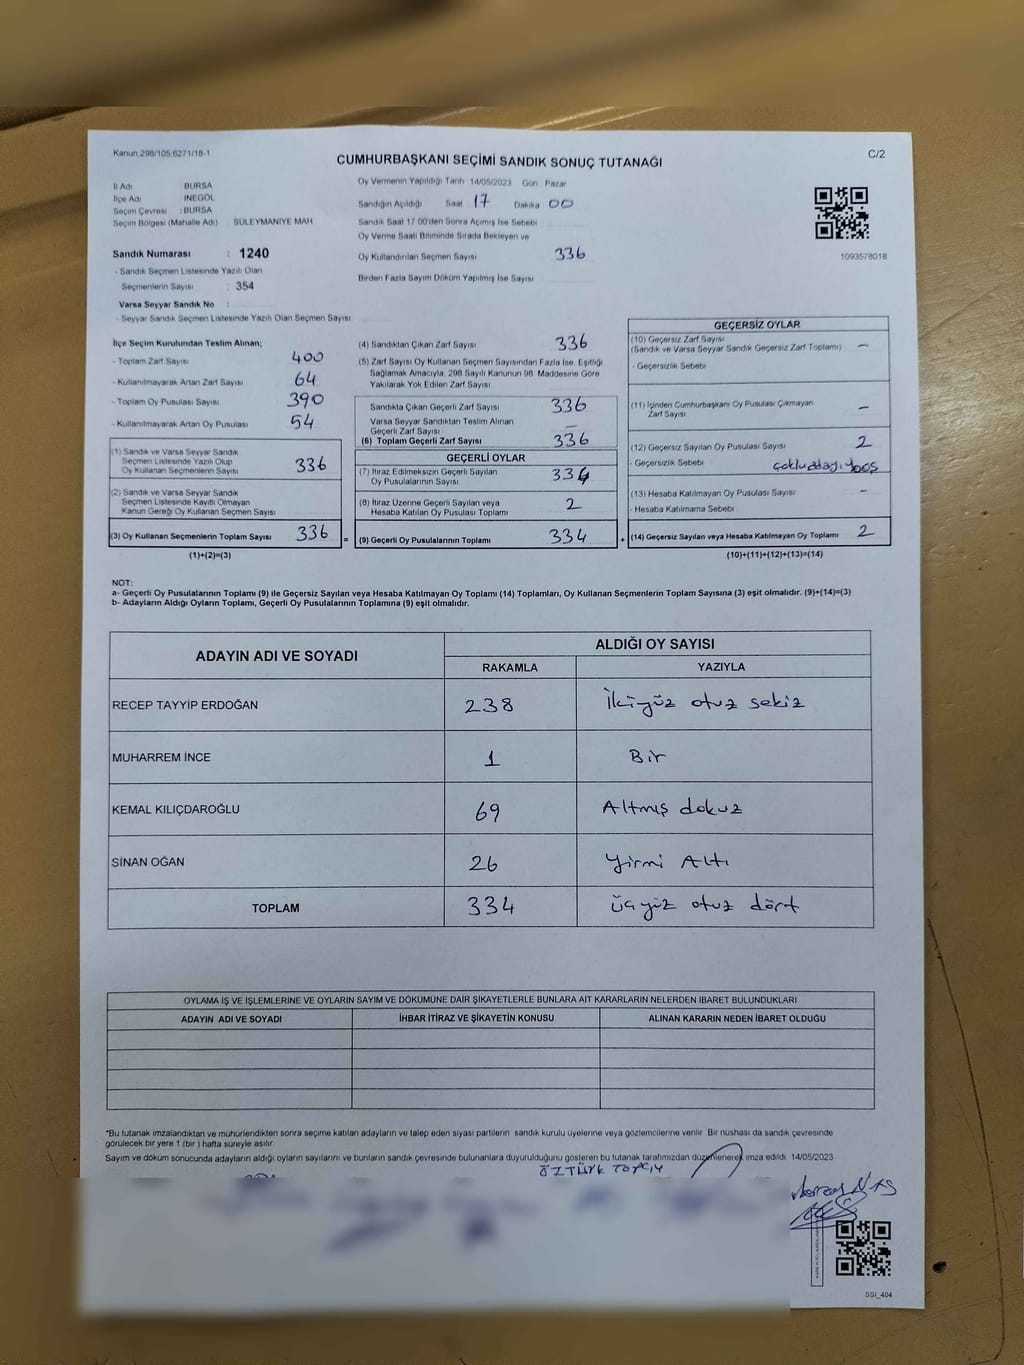 Kanun:298/105,6271/18-1
CUMHURBAŞKANI SEÇİMİ SANDIK SONUÇ TUTANAĞI
C/2
İl Adı BURSA
İlçe Adı İNEGÖL
Seçim Çevresi : BURSA
Seçim Bölgesi (Mahalle Adı) SÜLEYMANİYE MAH.
Sandık Numarası : 1240
- Sandık Seçmen Listesinde Yazılı Olan
Seçmenlerin Sayısı : 354
Varsa Seyyar Sandık No :
- Seyyar Sandık Seçmen Listesinde Yazılı Olan Seçmen Sayısı
Oy Vermenin Yapıldığı Tarih 14/05/2023 Gün Pazar
Sandığın Açıldığı Saat 17 Dakika 00
Sandık Saat 17:00'den Sonra Açılmış İse Sebebi
Oy Verme Saati Bitiminde Sırada Bekleyen ve
Oy Kullandırılan Seçmen Sayısı 336
Birden Fazla Sayım Döküm Yapılmış İse Sayısı
1093578018
İlçe Seçim Kurulundan Teslim Alınan;
- Toplam Zarf Sayısı 400
- Kullanılmayarak Artan Zarf Sayısı 64
- Toplam Oy Pusulası Sayısı 390
- Kullanılmayarak Artan Oy Pusulası 54
(1) Sandık ve Varsa Seyyar Sandık
Seçmen Listesinde Yazılı Olup
Oy Kullanan Seçmenlerin Sayısı 336
(2) Sandık ve Varsa Seyyar Sandık
Seçmen Listesinde Kayıtlı Olmayan
Kanun Gereği Oy Kullanan Seçmen Sayısı
(3) Oy Kullanan Seçmenlerin Toplam Sayısı 336 =
(1)+(2)=(3)
(4) Sandıktan Çıkan Zarf Sayısı 336
(5) Zarf Sayısı Oy Kullanan Seçmen Sayısından Fazla İse, Eşitliği
Sağlamak Amacıyla, 298 Sayılı Kanunun 98. Maddesine Göre
Yakılarak Yok Edilen Zarf Sayısı
Sandıkta Çıkan Geçerli Zarf Sayısı 336
Varsa Seyyar Sandıktan Teslim Alınan
Geçerli Zarf Sayısı –
(6) Toplam Geçerli Zarf Sayısı 336
GEÇERLİ OYLAR
(7) İtiraz Edilmeksizin Geçerli Sayılan
Oy Pusulalarının Sayısı 334
(8) İtiraz Üzerine Geçerli Sayılan veya
Hesaba Katılan Oy Pusulası Toplamı 2
(9) Geçerli Oy Pusulalarının Toplamı 334 +
GEÇERSİZ OYLAR
(10) Geçersiz Zarf Sayısı
(Sandık ve Varsa Seyyar Sandık Geçersiz Zarf Toplamı) –
- Geçersizlik Sebebi
(11) İçinden Cumhurbaşkanı Oy Pusulası Çıkmayan
Zarf Sayısı –
(12) Geçersiz Sayılan Oy Pusulası Sayısı 2
- Geçersizlik Sebebi
(13) Hesaba Katılmayan Oy Pusulası Sayısı –
- Hesaba Katılmama Sebebi
(14) Geçersiz Sayılan veya Hesaba Katılmayan Oy Toplamı 2
(10)+(11)+(12)+(13)=(14)
NOT:
a- Geçerli Oy Pusulalarının Toplamı (9) ile Geçersiz Sayılan veya Hesaba Katılmayan Oy Toplamı (14) Toplamları, Oy Kullanan Seçmenlerin Toplam Sayısına (3) eşit olmalıdır. (9)+(14)=(3)
b- Adayların Aldığı Oyların Toplamı, Geçerli Oy Pusulalarının Toplamına (9) eşit olmalıdır.
ADAYIN ADI VE SOYADI ALDIĞI OY SAYISI
RAKAMLA YAZIYLA
RECEP TAYYİP ERDOĞAN 238 İkiyüz otuz sekiz
MUHARREM İNCE 1 Bir
KEMAL KILIÇDAROĞLU 69 Altmış dokuz
SİNAN OĞAN 26 Yirmi Altı
TOPLAM 334 üçyüz otuz dört
OYLAMA İŞ VE İŞLEMLERİNE VE OYLARIN SAYIM VE DÖKÜMÜNE DAİR ŞİKAYETLERLE BUNLARA AİT KARARLARIN NELERDEN İBARET BULUNDUKLARI
ADAYIN ADI VE SOYADI İHBAR İTİRAZ VE ŞİKAYETİN KONUSU ALINAN KARARIN NEDEN İBARET OLDUĞU
*Bu tutanak imzalandıktan ve mühürlendikten sonra seçime katılan adayların ve talep eden siyasi partilerin sandık kurulu üyelerine veya gözlemcilerine verilir. Bir nüshası da sandık çevresinde
görülecek bir yere 1 (bir) hafta süreyle asılır.
Sayım ve döküm sonucunda adayların aldığı oyların sayılarını ve bunların sandık çevresinde bulunanlara duyurulduğunu gösteren bu tutanak tarafımızdan düzenlenerek imza edildi. 14/05/2023
ÖZTÜRK
SSI_404